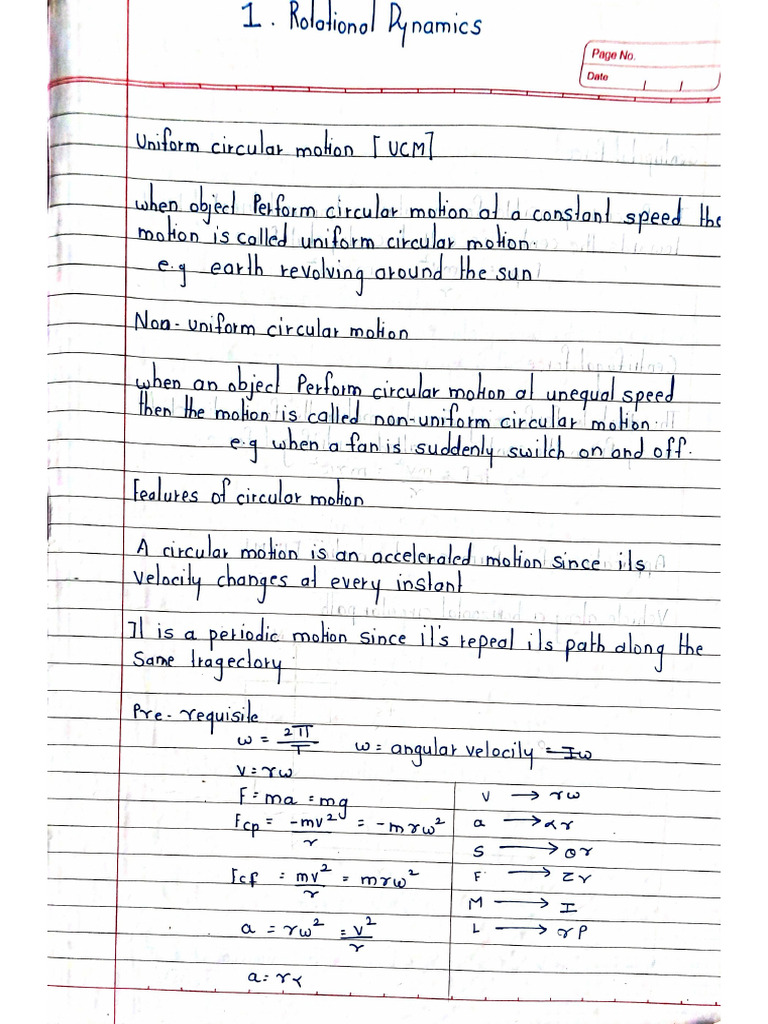 1. Rotational Dynamics
Page No.
Date
Uniform circular motion [UCM]
when object Perform circular motion at a constant speed the
motion is called uniform circular motion.
e.g earth revolving around the sun
Non-uniform circular motion
when an object Perform circular motion at unequal speed
then the motion is called non-uniform circular motion.
e.g when a fan is suddenly switch on and off.
Features of circular motion
A circular motion is an accelerated motion since its
velocity changes at every instant
It is a periodic motion since it's repeat its path along the
same tragectory
Pre-requisite
ω = 2π/T ω = angular velocity = Iω
V = rω
F = ma = mg
Fcp = -mv²/r = -mrω²
Fcf = mv²/r = mrω²
a = rω² = v²/r
a = rα
V → rω
a → αr
S → θr
F → τr
M → I
L → rP